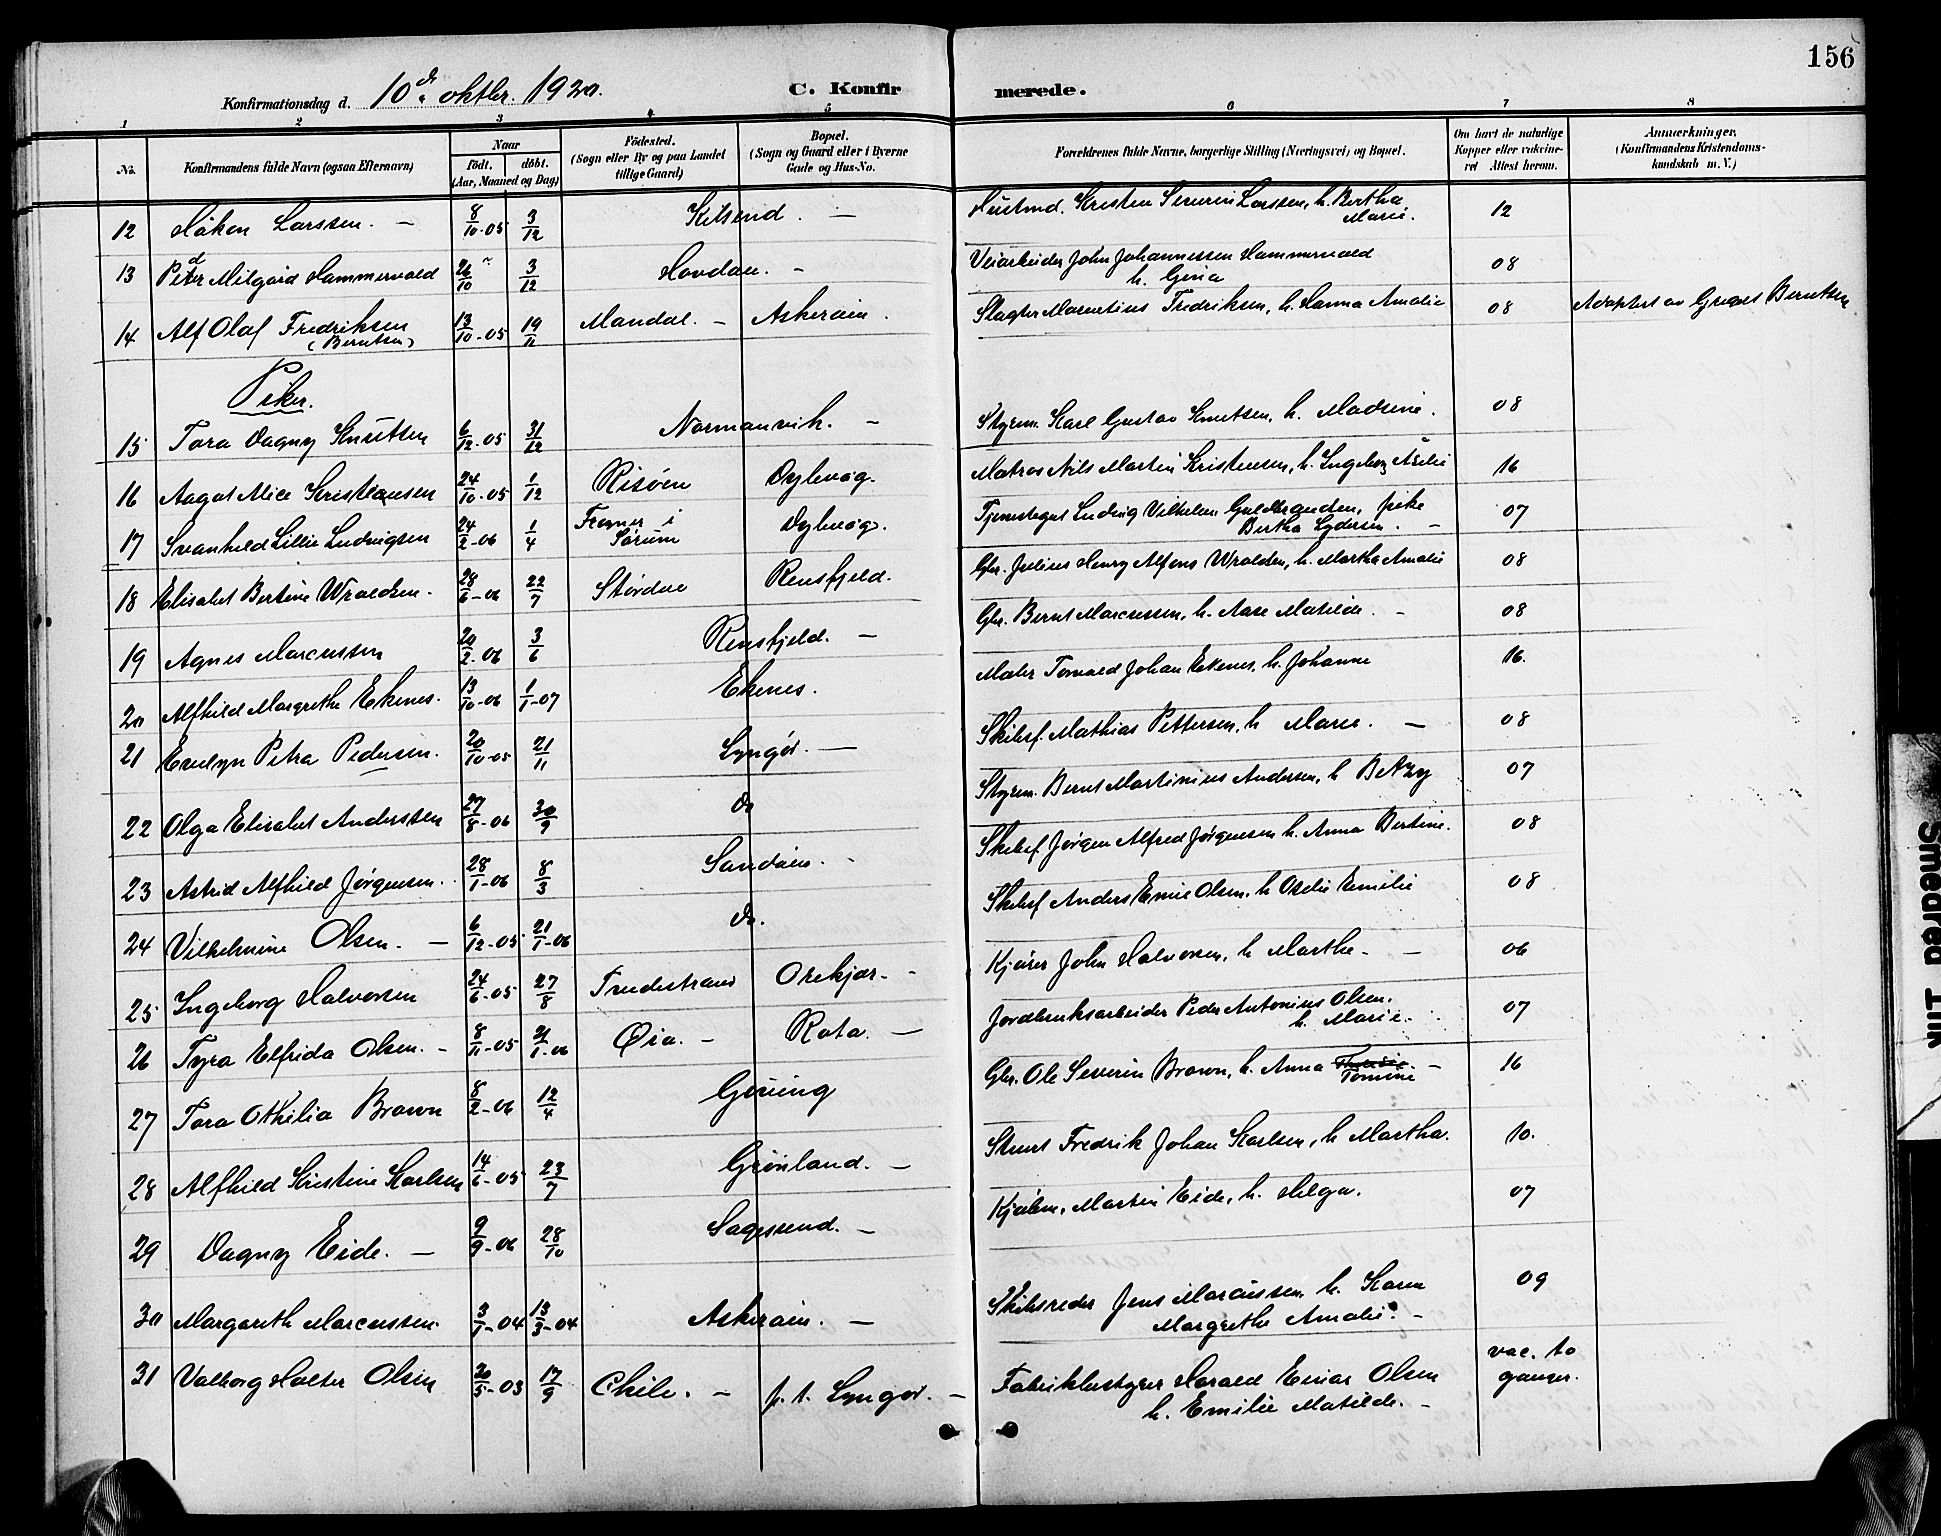 156
Konfirmationsdag d. 10de oktbr. 1920.
C. Konfirmerede.
1 2 3 4 5 6 7 8
No.
Konfirmandens fulde Navn (ogsaa Efternavn)
Naar
født. døbt.
(Aar, Maaned og Dag)
Fødested.
(Sogn eller By og paa Landet
tillige Gaard)
Bopæl.
(Sogn og Gaard eller i Byerne
Gade og Hus-No.
Forældrenes fulde Navne, borgerlige Stilling (Næringsvei) og Bopæl.
Om havt de naturlige
Kopper eller vakcine-
ret Attest herom.
Anmærkninger,
(Konfirmandens Kristendoms-
kundskab m. V.)
12 Håkon Larssen. — 8/10-05 3/12 Kilsund. — Hustmd. Kristen Severin Larssen, h. Bertha Marie. 12
13 Peder Milgård Hammervold 26/10 " 3/12 Hovdan. - Veiarbeider John Johannessen Hammervold h. Gina 08
14 Alf Olaf Fredriksen (Berntsen) 13/10-05 19/11 Mandal. - Askerøien. Slagter Marentius Fredriksen, h. Hanna Amalie 08 Adoptert av Gregert Berntsen
Piker.
15 Tora Dagny Knutsen 6/12-05 31/12 Normanvik. - Styrm. Karl Gustav Knutsen, h. Madsine. 08
16 Aagot Alice Kristensen 24/10-05 1/12 Risøen Dybvåg. Matros Nils Martin Kristensen, h. Ingeborg Åsilie 16
17 Svanhild Lillie Ludvigsen 24/2-06 1/4 Frogner i Sørum Dybvåg. Tjenestegut Ludvig Vilhelm Guldbrandsen, pike Bertha Lydersen. - 07
18 Elisabet Bertine Wroldsen. 28/6-06 22/7 Størdal Rensfjeld. Gbr. Julius Henry Alfons Wroldsen, h. Martha Amalie 08
19 Agnes Marcussen 20/2-06 3/6 Rensfjeld. - Gbr. Bernt Marcussen, h. Aase Matilde. - 08
20 Alfhild Margrethe Ekenes. 13/10-06 1/1-07 Ekenes. Maler Torvald Johan Ekenes, h. Johanne 16.
21 Evelyn Petra Pedersen. 20/10-05 21/11 Lyngør. — Skibsf. Mathias Pettersen, h Marie. — 08
22 Olga Elisabet Anderssen 27/8-06 30/9 Do Styrm. Bernt Martinius Andersen, h Betzy 07
23 Astrid Alfhild Jørgensen. 28/1-06 8/3 Sandøien. Skibsf. Jørgen Alfred Jørgensen h. Anna Bertine. 08
24 Vilhelmine Olsen. — 6/12-05 21/1-06 Do. Skibsf Anders Emil Olsen, h Ozilie Emilie 08
25 Ingeborg Halvorsen 24/6-05 27/8 Tvedestrand Orekjær. - Kjører John Halvorsen, h Marthe - — 06
26 Tyra Elfrida Olsen. - 8/11-05 21/1-06 Øia. - Rota. — Jordbruksarbeider Peder Antonius Olsen, h. Marie. 07
27 Tora Othilia Brown 8/2-06 12/4 Gjeving Gbr. Ole Severin Brown, h. Anna Tomine - 16
28 Alfhild Kristine Karlsen 14/6-05 23/7 Grønland. — Stuert Fredrik Johan Karlsen, h Martha. 10.
29 Dagny Eide. — 9/9-06 28/10 Sagesund. — Kjøbm. Martin Eide, h. Helga. 07
30 Margareth Marcussen. 3/1-04 13/3-04 Askerøien. — Skibsreder Jens Marcussen h. Karen Margrethe Amalie. - 09
31 Valborg Holter Olsen 20/5-03 17/9 Chile. - p. t. Lyngør. — Fabrikbestyrer Harald Einar Olsen h. Emilie Matilde. - vac. to ganger.
Smedrød Trk